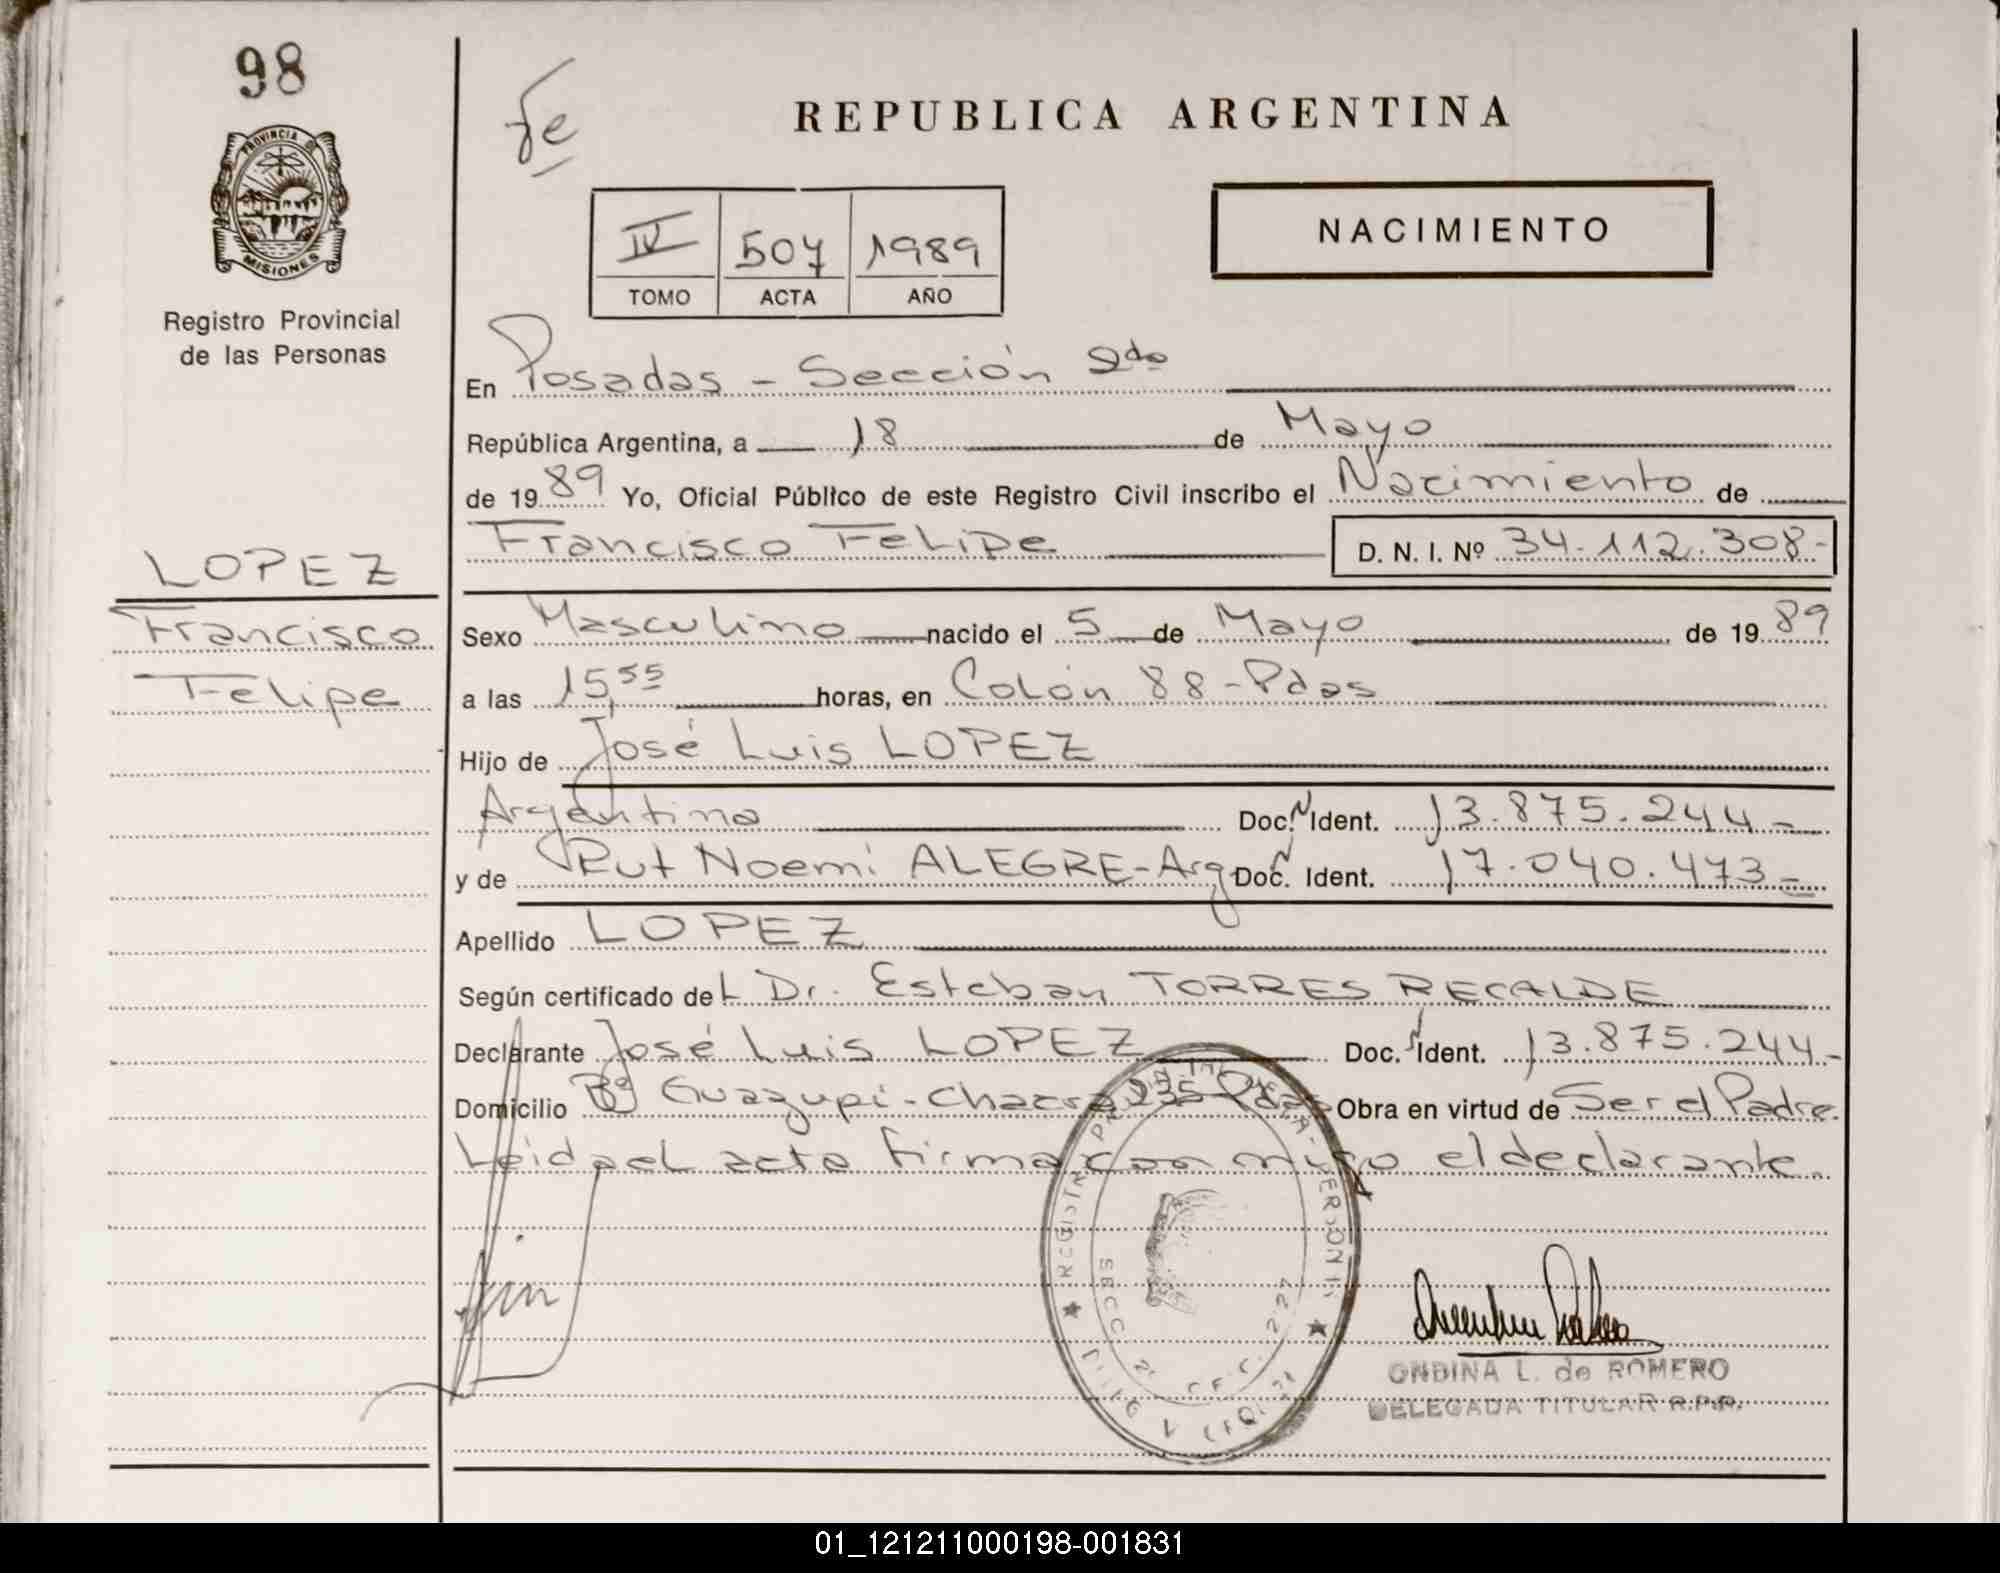 98
PROVINCIA DE
MISIONES
Registro Provincial
de las Personas
LOPEZ
Francisco
Felipe
fe
REPUBLICA ARGENTINA
IV 507 1989
TOMO ACTA AÑO
NACIMIENTO
En Posadas - Sección 2da
República Argentina, a 18 de Mayo
de 1989 Yo, Oficial Público de este Registro Civil inscribo el Nacimiento de
Francisco Felipe D. N. I. Nº 34.112.308-
Sexo Masculino nacido el 5 de Mayo de 1989
a las 15,55 horas, en Colón 88 - Pdas
Hijo de José Luis LOPEZ
Argentino Doc. N Ident. 13.875.244-
y de Rut Noemí ALEGRE - Arg Doc. N Ident. 17.040.473-
Apellido LOPEZ
Según certificado del Dr. Esteban TORRES RECALDE
Declarante José Luis LOPEZ Doc. N Ident. 13.875.244-
Domicilio Bº Guazupi - Chacra 235 Pdas Obra en virtud de Ser el Padre
Leida el acta firma con migo el declarante.
ONDINA L. de ROMERO
DELEGADA TITULAR R.P.P.
01_121211000198-001831